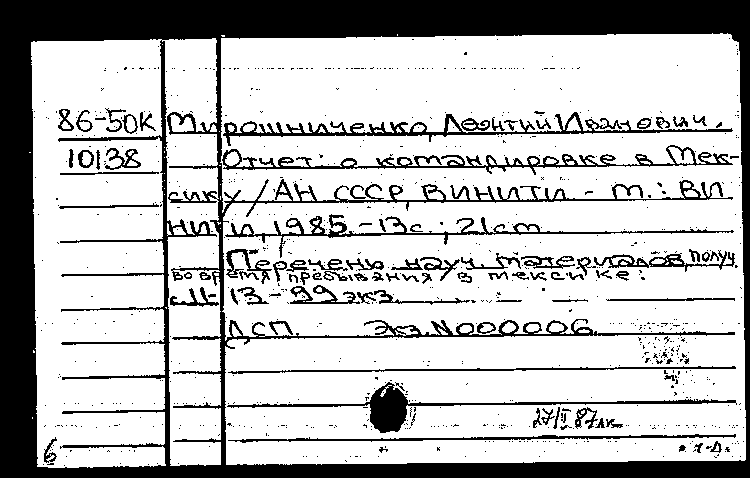 86-50К Мирошниченко, Леонтий Иванович.
10138 Отчет: о командировке в Мек-
сику / АН СССР, ВИНИТИ. - М.: ВИ
НИТИ, 1985. - 13с.; 21см
Перечень науч. материалов, получ.
во время пребывания в Мексике:
с.11-13 - 99 экз.
ДСП. Экз.N000006
27/II 87
6